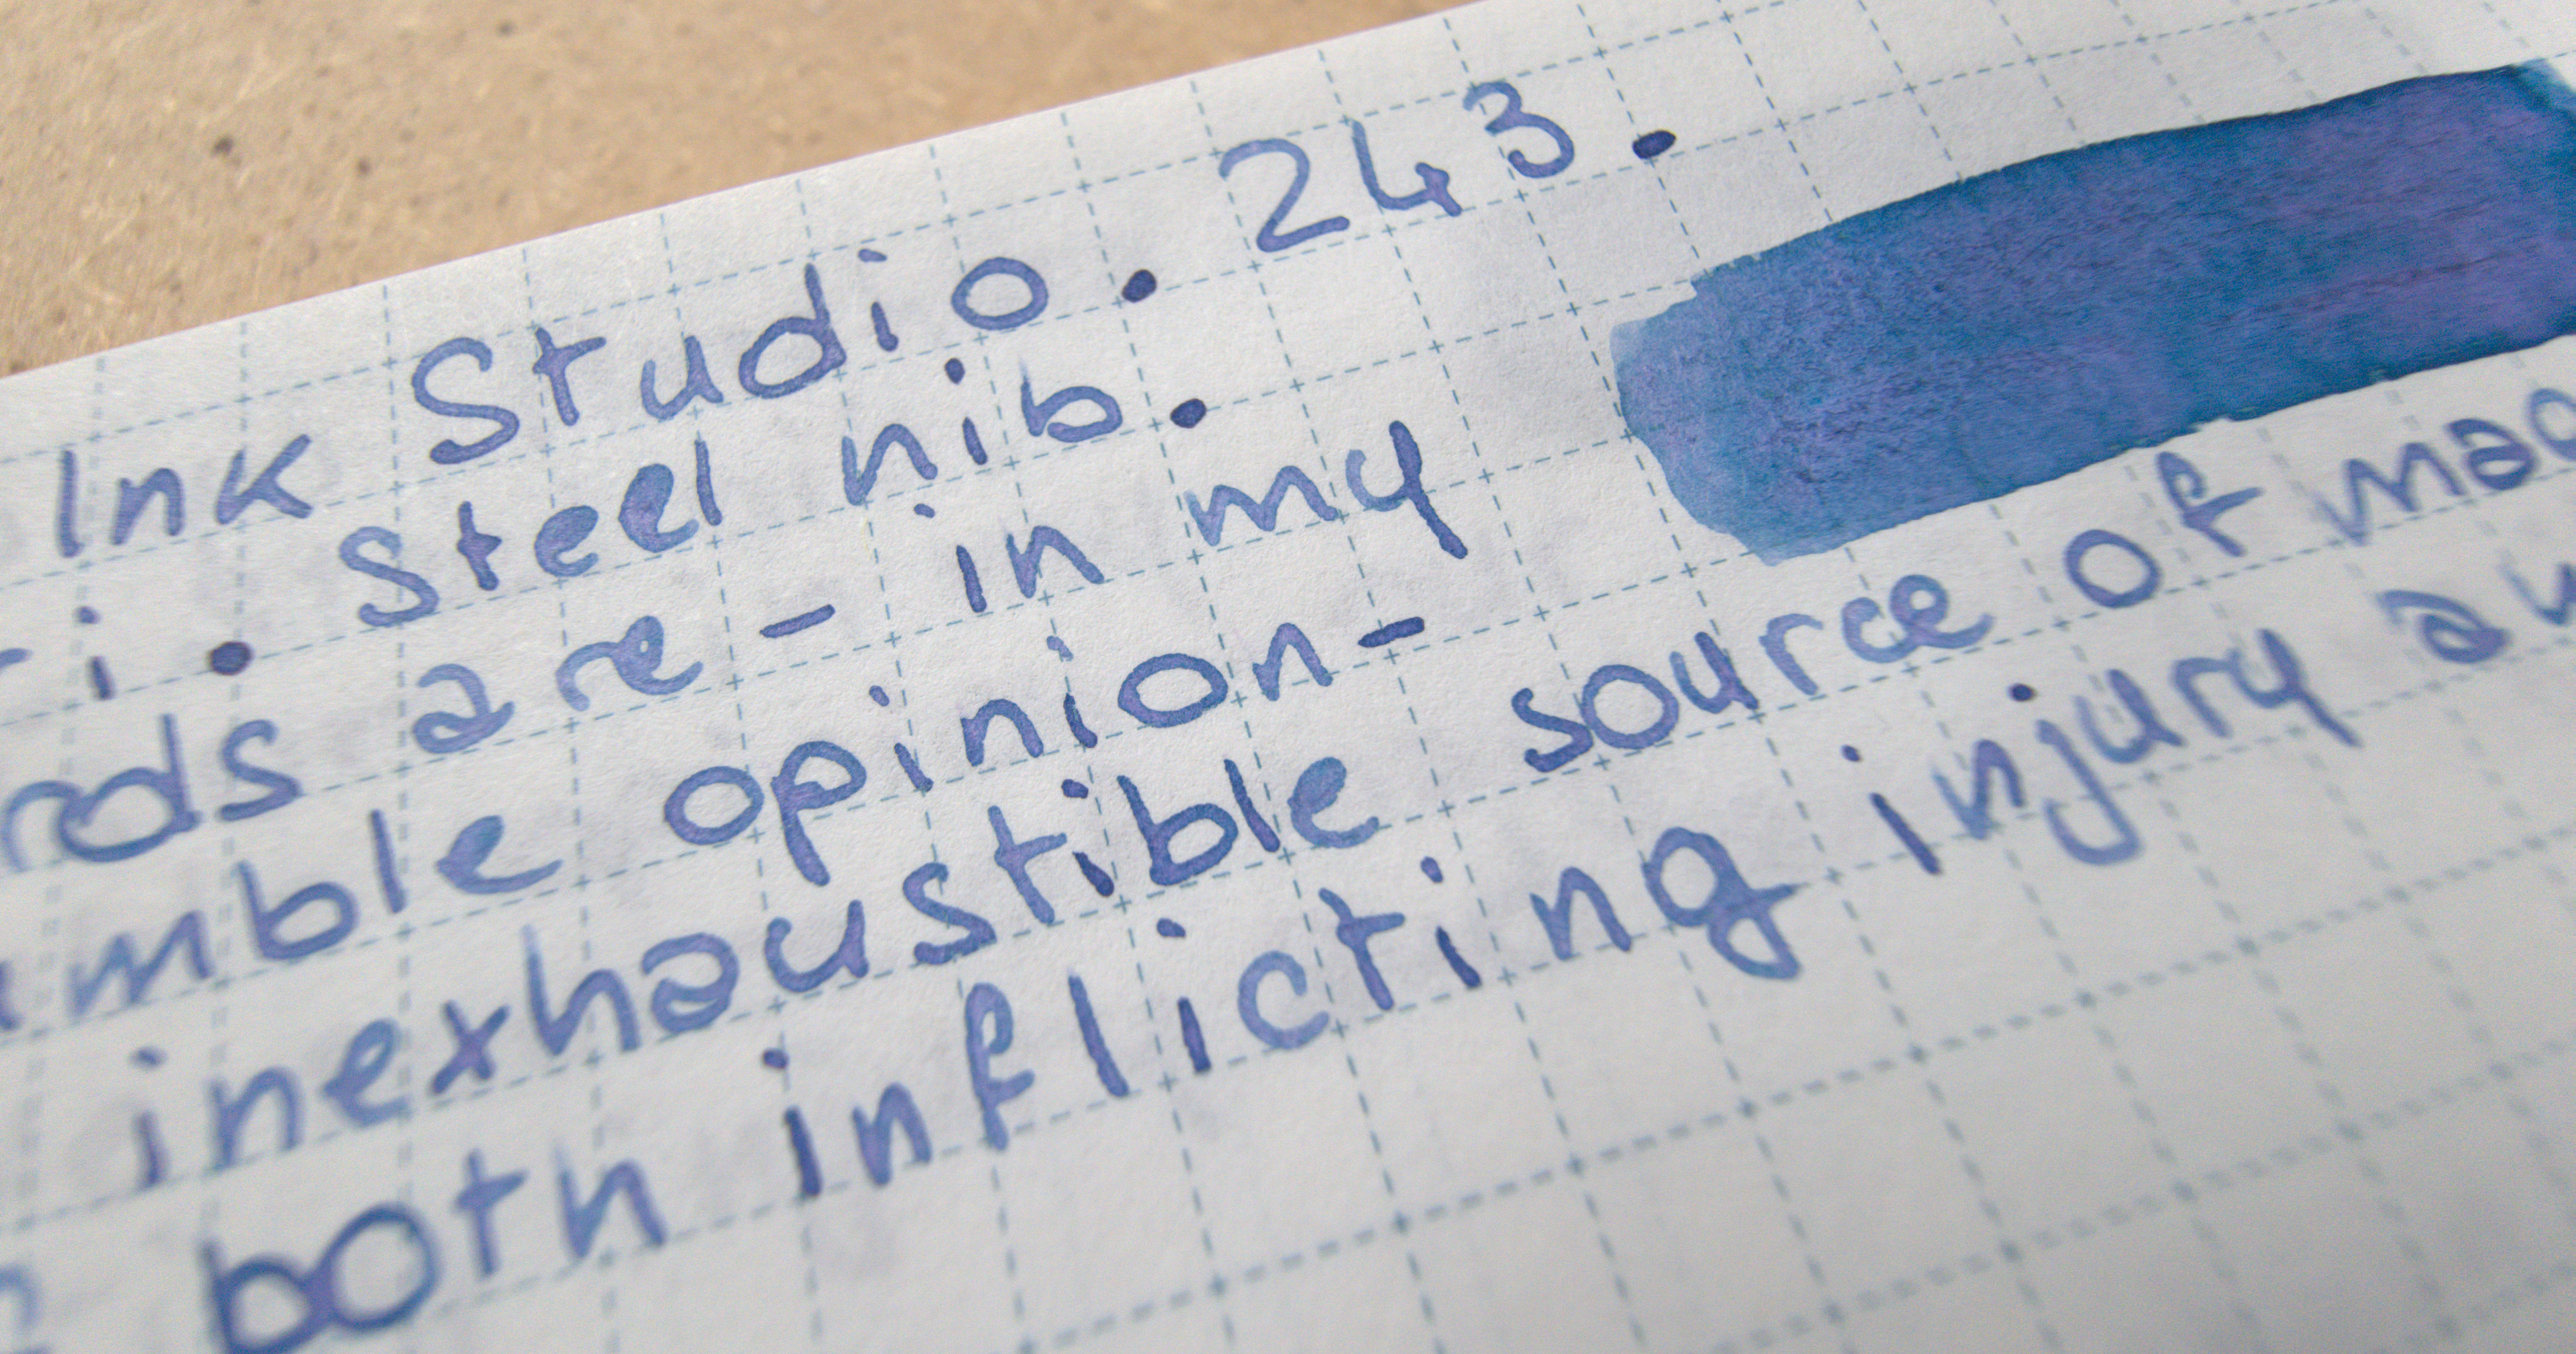 Ink Studio. 243.
Steel nib.
are - in my
opinion -
inexhaustible source of
both inflicting injury